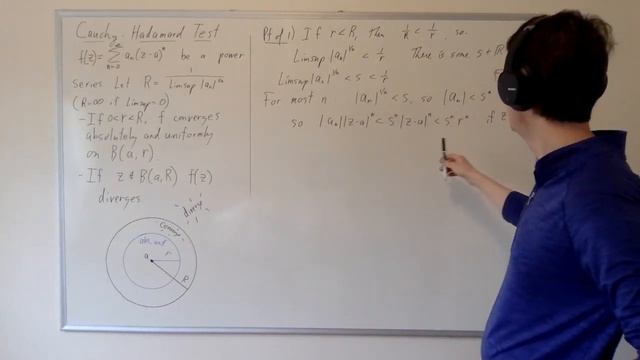 Cauchy-Hadamard Test
f(z) = ∞ Σ n=0 aₙ(z-a)ⁿ be a power
series. Let R = 1 / limsup |aₙ|^(1/n)
(R=∞ if limsup = 0)
- If 0<r<R, f converges
absolutely and uniformly
on B(a, r).
- If z ∉ B(a, R) f(z)
diverges
diverge
Converge
abs. unif
a
r
R
Pf of 1) If r<R, then 1/R < 1/r, so.
Limsup |aₙ|^(1/n) < 1/r There is some s
Limsup |aₙ|^(1/n) < s < 1/r
For most n |aₙ|^(1/n) < s, so |aₙ| < sⁿ
so |aₙ||z-a|ⁿ < sⁿ|z-a|ⁿ < sⁿ rⁿ if z